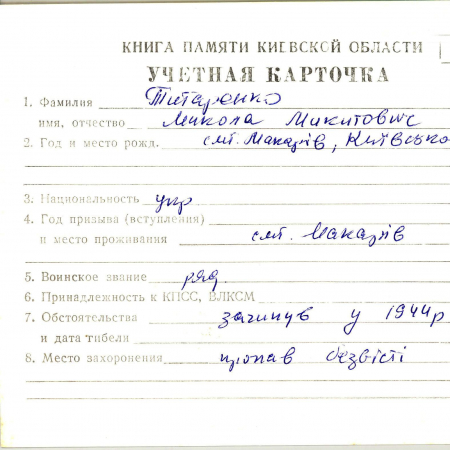 КНИГА ПАМЯТИ КИЕВСКОЙ ОБЛАСТИ
УЧЕТНАЯ КАРТОЧКА
1. Фамилия Титаренко
имя, отчество Микола Микитович
2. Год и место рожд. смт. Макарів, Київсько
3. Национальность укр
4. Год призыва (вступления)
и место проживания смт. Макарів
5. Воинское звание ряд.
6. Принадлежность к КПСС, ВЛКСМ
7. Обстоятельства загинув у 1944р
и дата гибели
8. Место захоронения пропав безвісті